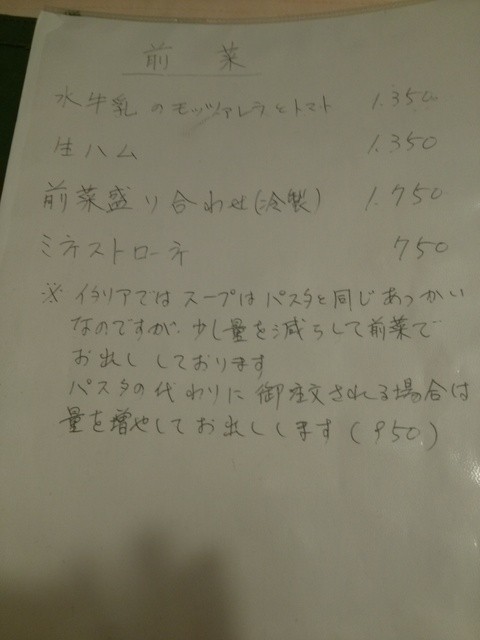 前菜
水牛乳のモッツァレラとトマト 1.350
生ハム 1.350
前菜盛り合わせ(冷製) 1.750
ミネストローネ 750
※ イタリアではスープはパスタと同じあつかい
なのですが、少し量を減らして前菜で
お出ししております
パスタの代わりに御注文される場合は
量を増やしてお出しします(950)